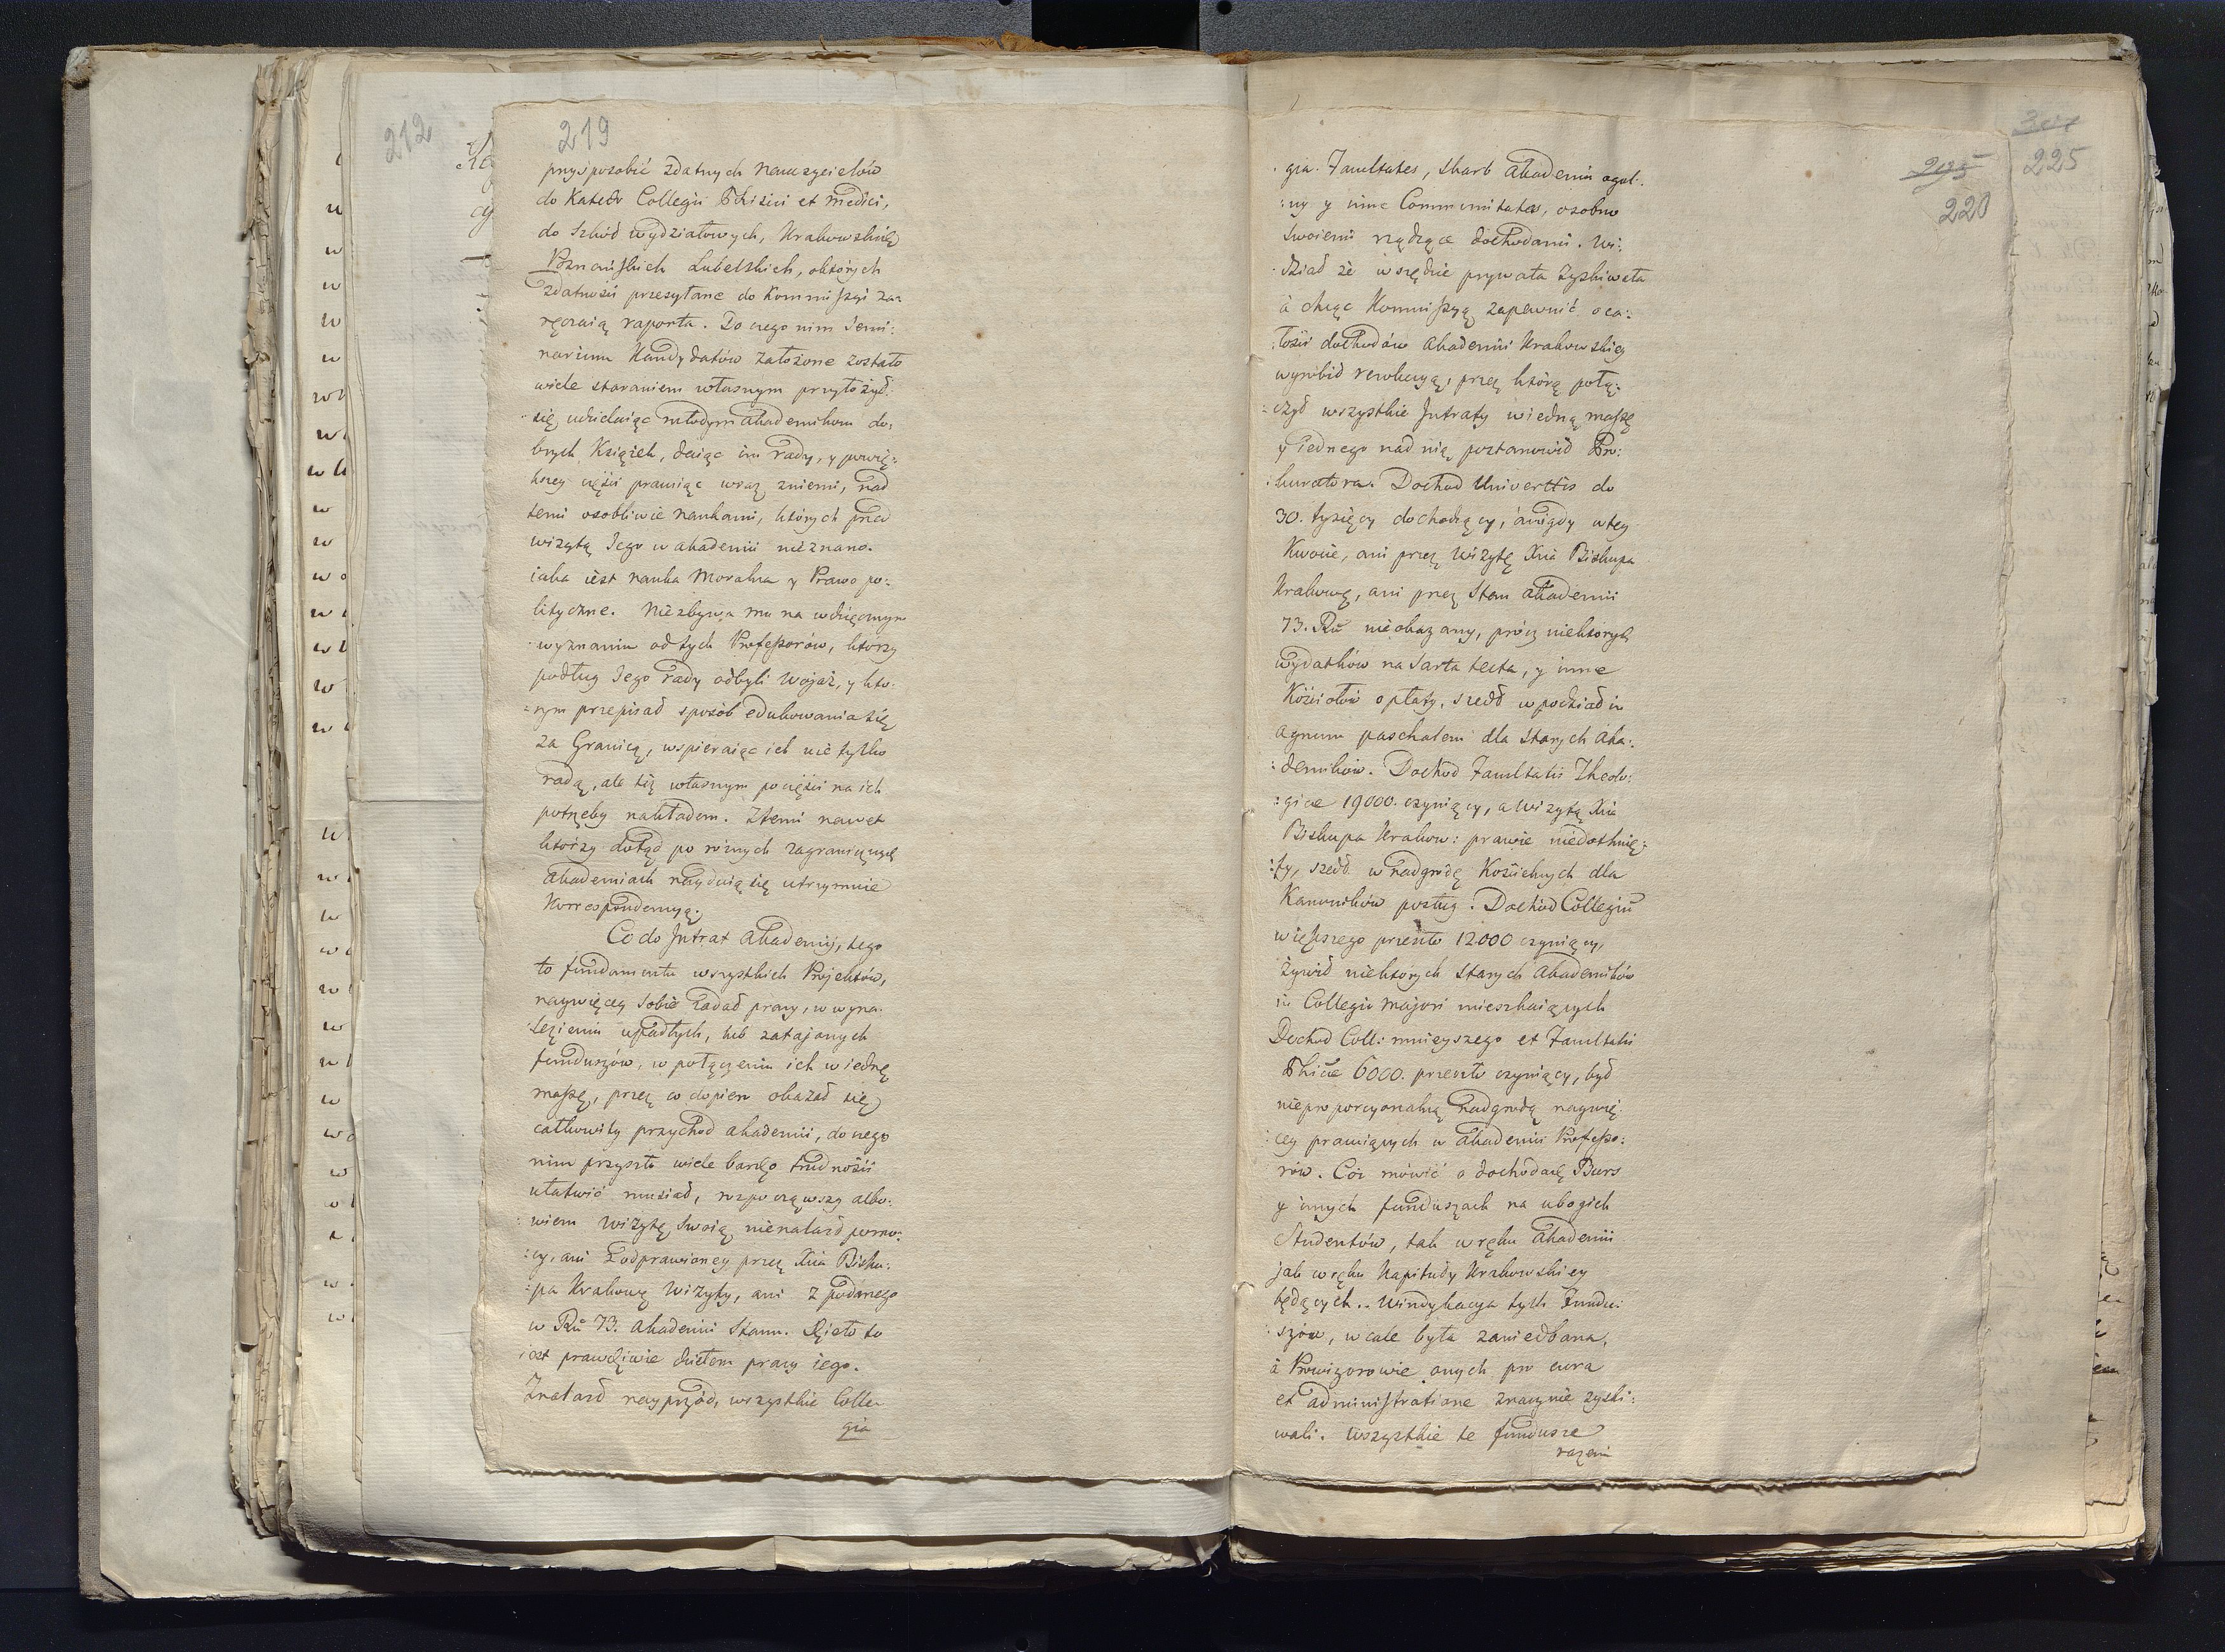 212
219
przysposobić zdatnych nauczycielów
do Katedr Collegii Phisici et medici,
do Szkół wydziałowych, Krakowskiey
Poznańskich Lubelskich, o których
zdatności przesyłane do Kommissyi za=
ręczaią raporta. Do czego nim Semi:
narium Kandydatów założone zostało
wiele staraniem własnym przyłożył
się, udzielaiąc młodym akademikom do:
brych Książek, daiąc im rady, y powię:
kszey części pracuiąc wraz zniemi, nad
temi osobliwie naukami, których przed
wizytą Jego w akademii nieznano.
iaka iest nauka Moralna y Prawo po:
lityczne. Niezbywa mu na wdzięcznym
wyznaniu od tych Professorów, którzy
podług Jego rady odbyli wojaż, y któ:
rym przepisał sposób edukowania się
za Granicą, wspieraiąc ich nie tylko
radą, ale też własnym po części na ich
potrzeby nakładem. Ztemi nawet
którzy dotąd po różnych zagranicznych
akademiach znayduią się utrzymuie
Korrespondencyą.
Co do Jntrat akademij, tego
to fundamentu wszystkich Projektów,
naywięcey sobie zadał pracy, w wyna:
lezieniu upadłych, lub zatajonych
funduszów, w połączeniu ich w iednę
massę, przez co dopiero okazał się
całkowity przychod akademii, do czego
nim przyszło wiele bardzo trudności
ułatwić musiał, rozpocząwszy albo:
wiem wizytę swoią nienalazł pomo:
:cy, ani z odprawioney przez Xcia Bisku:
:pa Krakowg wizyty, ani z podanego
w Rŭ 73. akademii Stanu. Dzieło to
iest prawdziwie dziełem pracy iego.
Znalazł nayprzód, wszystkie Colle=
gia
301
225
205
220
gia. Facultates, skarb akademii ogól:
:ny y inne Communitates, osobno
swoiemi rządzące dochodami. Wi:
dział że wszędzie prywata zyskiwała
à chcąc Kommissyą zapewnić o ca:
łości dochodów akademii Krakowskiey
wyrobił rewolucyą, przez którą połą:
=czył wszystkie Jntraty w iedną massę
y iednego nad nią postanowił Pro:
:kuratora. Dochod Univerttis do
30. tysięcy dochodzący, a nigdy w tey
Kwocie, ani przez Wizytę Xcia Biskupa
Krakowg, ani przez Stan akademii
73. Rŭ nieokazany, prócz niektórych
wydatków na Sarta tecta, y inne
Kościołów opłaty, szedł w podział in
agnum paschalem dla starych aka:
:demików. Dochod Facultatis Theolo:
:gicae 19000. czyniący, a wizytą Xcia
Biskupa Krakow: prawie niedotknię:
:ty, szedł w nadgrodę Kościelnych dla
Kanoników posług. Dochod Collegii
większego przeszło 12000 czyniący,
żywił niektórych starych akademików
in Collegio majori mieszkaiących
Dochod Coll: mnieyszego et Facultatis
Phicae 6000. przeszło czyniący, był
nieproporcyonalną nadgrodą naywię:
cey pracuiących w akademii Professo:
rów. Cóż mówić o dochodach Burs
y innych funduszach na ubogich
Studentów, tak w ręku akademii
jak w ręku Kapituły Krakowskiey
będących. Windykacya tych Fundu:
szów, wcale była zaniedbana,
à Prowizorowie onych pro cura
et administratione znacznie zyski:
wali. Wszystkie te fundusze
razem